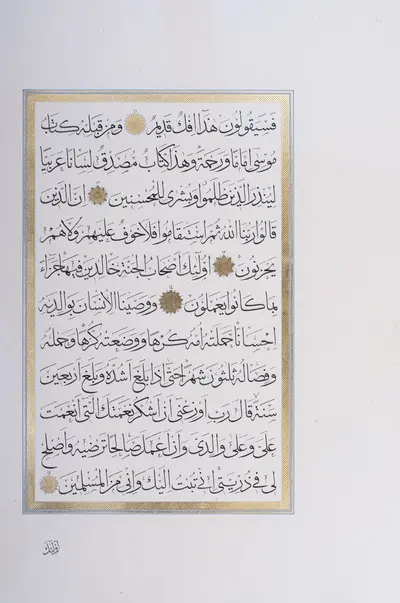 فسيقولون هذا افك قديم ومن قبله كتاب
موسى اماما ورحمة وهذا كتاب مصدق لسانا عربيا
لينذر الذين ظلموا وبشرى للمحسنين ان الذين
قالوا ربنا الله ثم استقاموا فلا خوف عليهم ولا هم
يحزنون اولئك اصحاب الجنة خالدين فيها جزاء
بما كانوا يعملون ووصينا الانسان بوالديه
احسانا حملته امه كرها ووضعته كرها وحمله
وفصاله ثلثون شهرا حتى اذا بلغ اشده وبلغ اربعين
سنة قال رب اوزعنى ان اشكر نعمتك التى انعمت
على وعلى والدى وان اعمل صالحا ترضيه واصلح
لى فى ذريتى انى تبت اليك وانى من المسلمين
اولئك